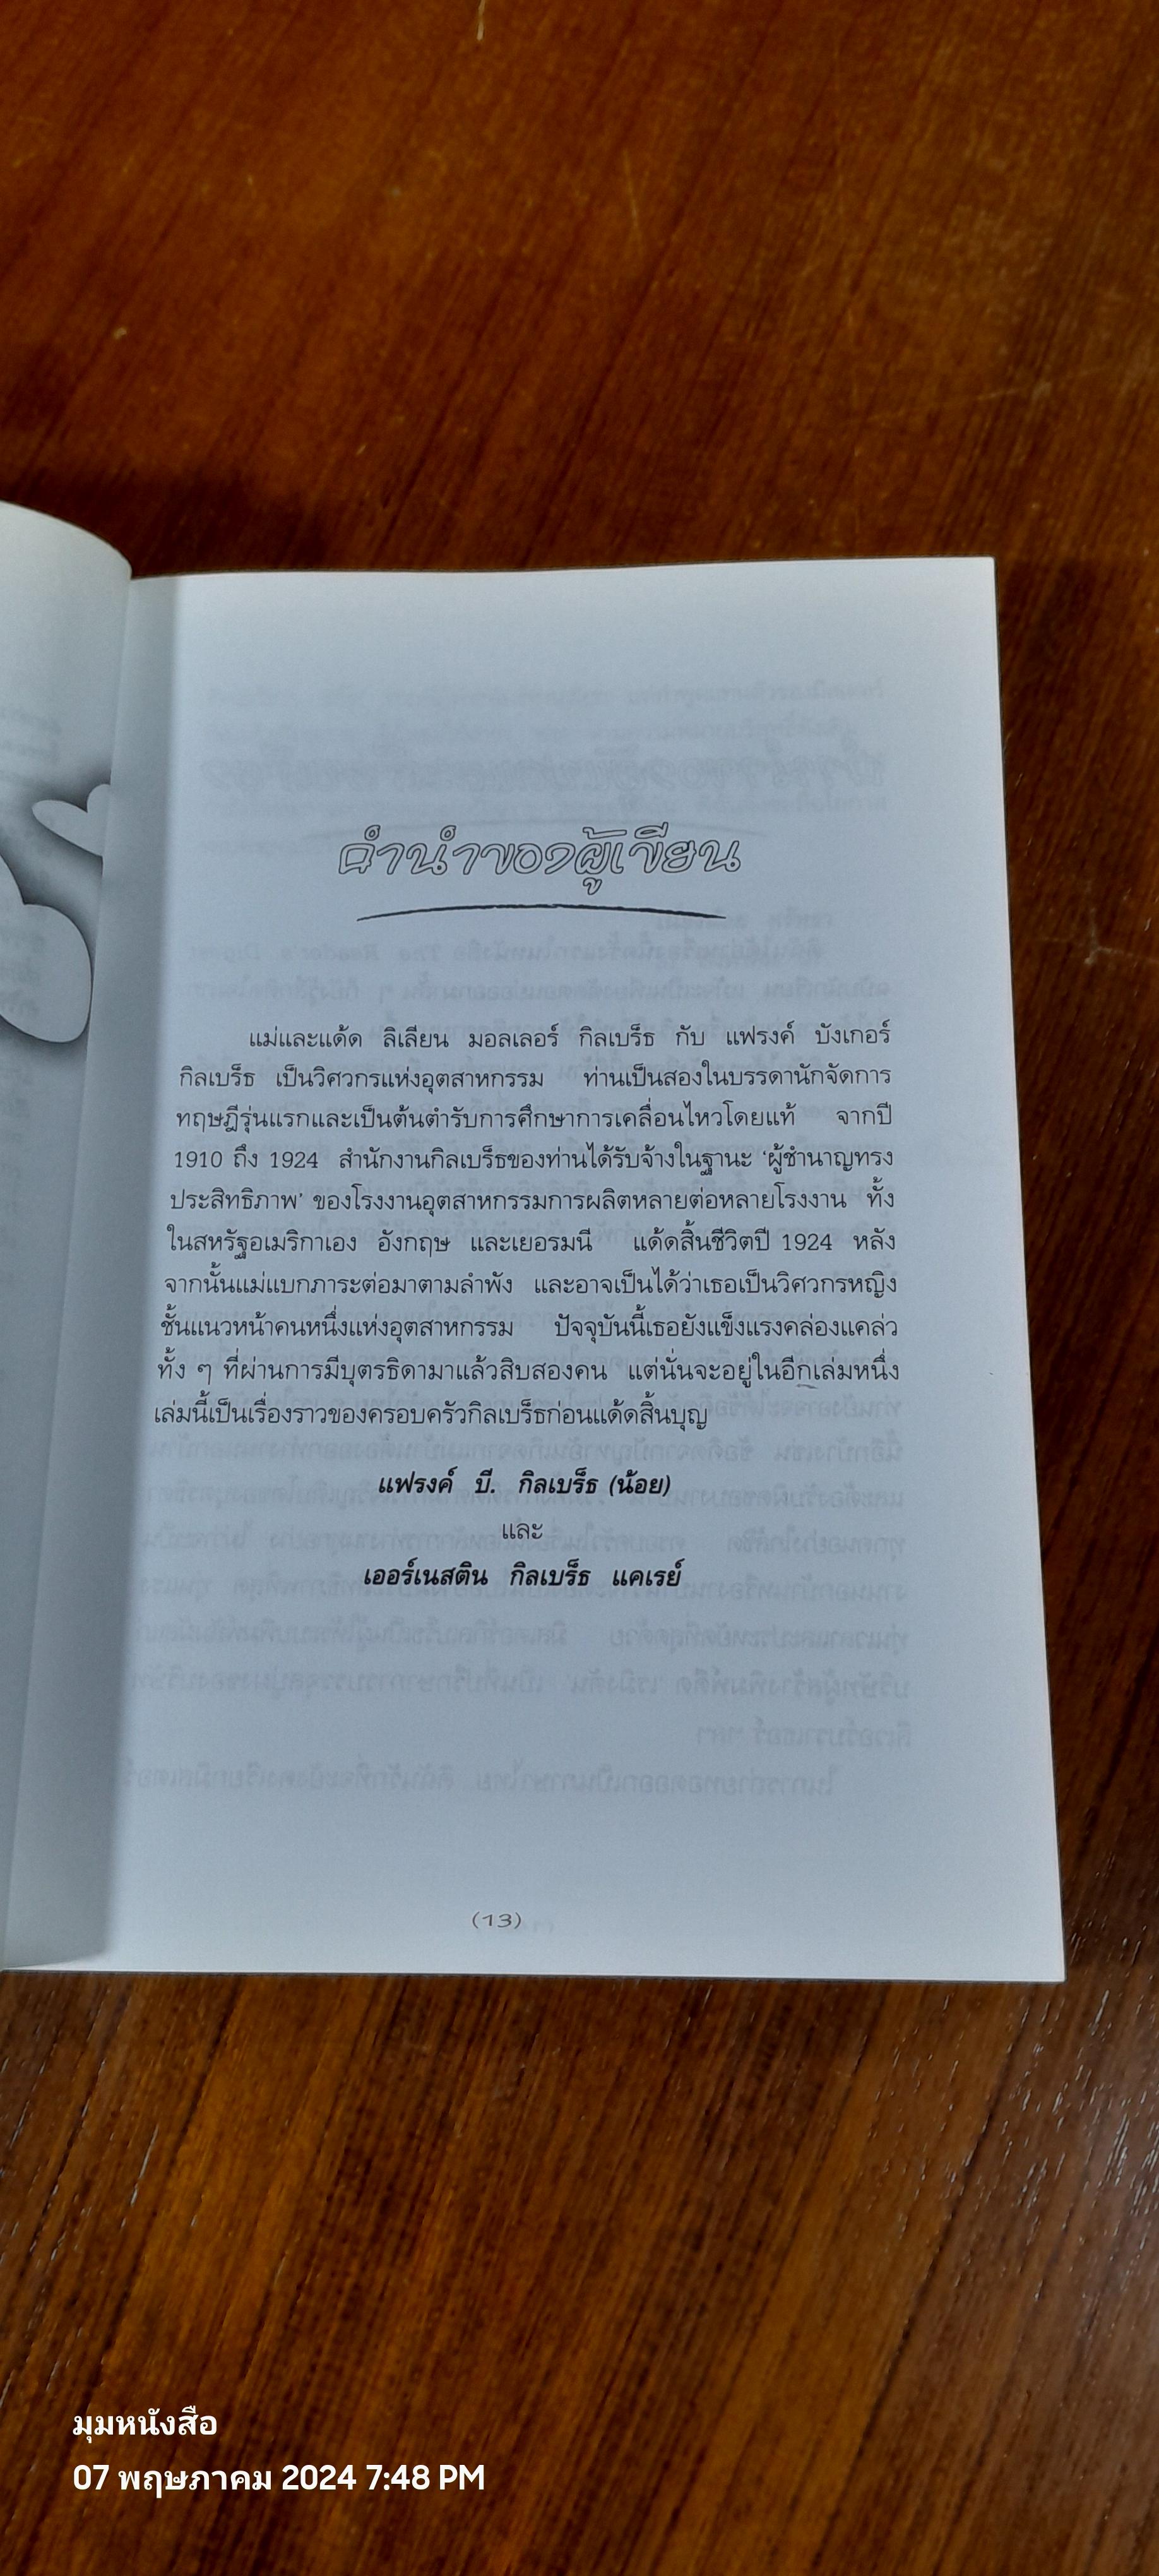 คำนำของผู้เขียน
แม่และแด้ด ลิเลียน มอลเลอร์ กิลเบร็ธ กับ แฟรงค์ บังเกอร์
กิลเบร็ธ เป็นวิศวกรแห่งอุตสาหกรรม ท่านเป็นสองในบรรดานักจัดการ
ทฤษฎีรุ่นแรกและเป็นต้นตำรับการศึกษาการเคลื่อนไหวโดยแท้ จากปี
1910 ถึง 1924 สำนักงานกิลเบร็ธของท่านได้รับจ้างในฐานะ ‘ผู้ชำนาญทรง
ประสิทธิภาพ’ ของโรงงานอุตสาหกรรมการผลิตหลายต่อหลายโรงงาน ทั้ง
ในสหรัฐอเมริกาเอง อังกฤษ และเยอรมนี แด้ดสิ้นชีวิตปี 1924 หลัง
จากนั้นแม่แบกภาระต่อมาตามลำพัง และอาจเป็นได้ว่าเธอเป็นวิศวกรหญิง
ชั้นแนวหน้าคนหนึ่งแห่งอุตสาหกรรม ปัจจุบันนี้เธอยังแข็งแรงคล่องแคล่ว
ทั้ง ๆ ที่ผ่านการมีบุตรธิดามาแล้วสิบสองคน แต่นั่นจะอยู่ในอีกเล่มหนึ่ง
เล่มนี้เป็นเรื่องราวของครอบครัวกิลเบร็ธก่อนแด้ดสิ้นบุญ
แฟรงค์ บี. กิลเบร็ธ (น้อย)
และ
เออร์เนสติน กิลเบร็ธ แคเรย์
(13)
มุมหนังสือ
07 พฤษภาคม 2024 7:48 PM